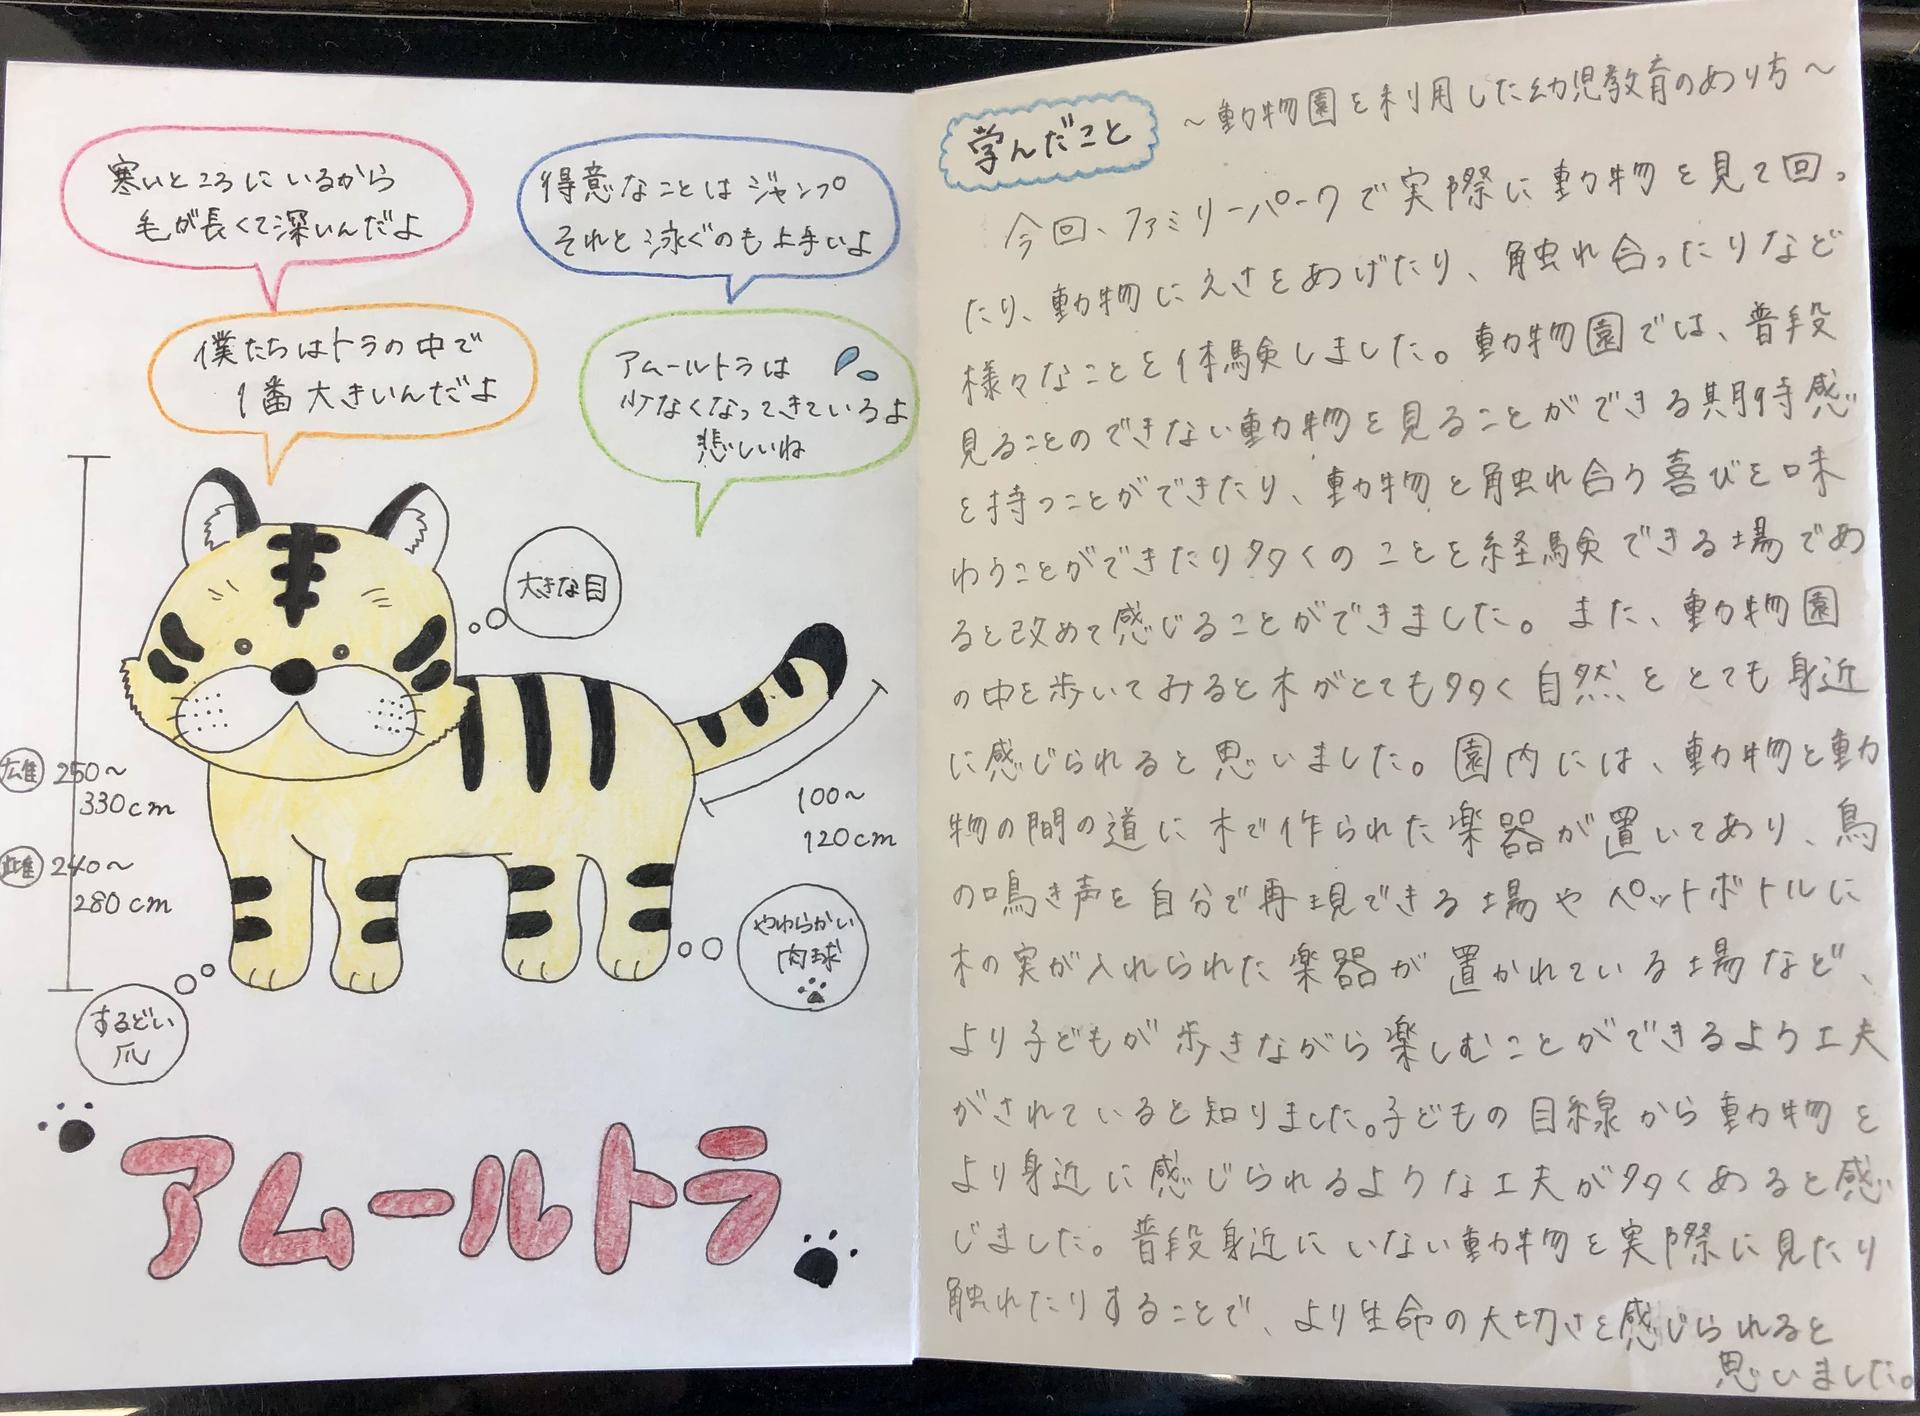 寒いところにいるから
毛が長くて深いんだよ
得意なことはジャンプ
それと泳ぐのも上手いよ
僕たちはトラの中で
1番大きいんだよ
アムールトラは
少なくなってきているよ
悲しいね
大きな目
雄 250～
330cm
雌 240～
280cm
100～
120cm
やわらかい
肉球
するどい
爪
アムールトラ
学んだこと
～動物園を利用した幼児教育のあり方～
今回、ファミリーパークで実際に動物を見て回っ
たり、動物にえさをあげたり、触れ合ったりなど
様々なことを体験しました。動物園では、普段
見ることのできない動物を見ることができる期待感
を持つことができたり、動物と触れ合う喜びを味
わうことができたり多くのことを経験できる場であ
ると改めて感じることができました。また、動物園
の中を歩いてみると木がとても多く自然をとても身近
に感じられると思いました。園内には、動物と動
物の間の道に木で作られた楽器が置いてあり、鳥
の鳴き声を自分で再現できる場やペットボトルに
木の実が入れられた楽器が置かれている場など、
より子どもが歩きながら楽しむことができるよう工夫
がされていると知りました。子どもの目線から動物を
より身近に感じられるような工夫が多くあると感
じました。普段身近にいない動物を実際に見たり
触れたりすることで、より生命の大切さを感じられると
思いました。